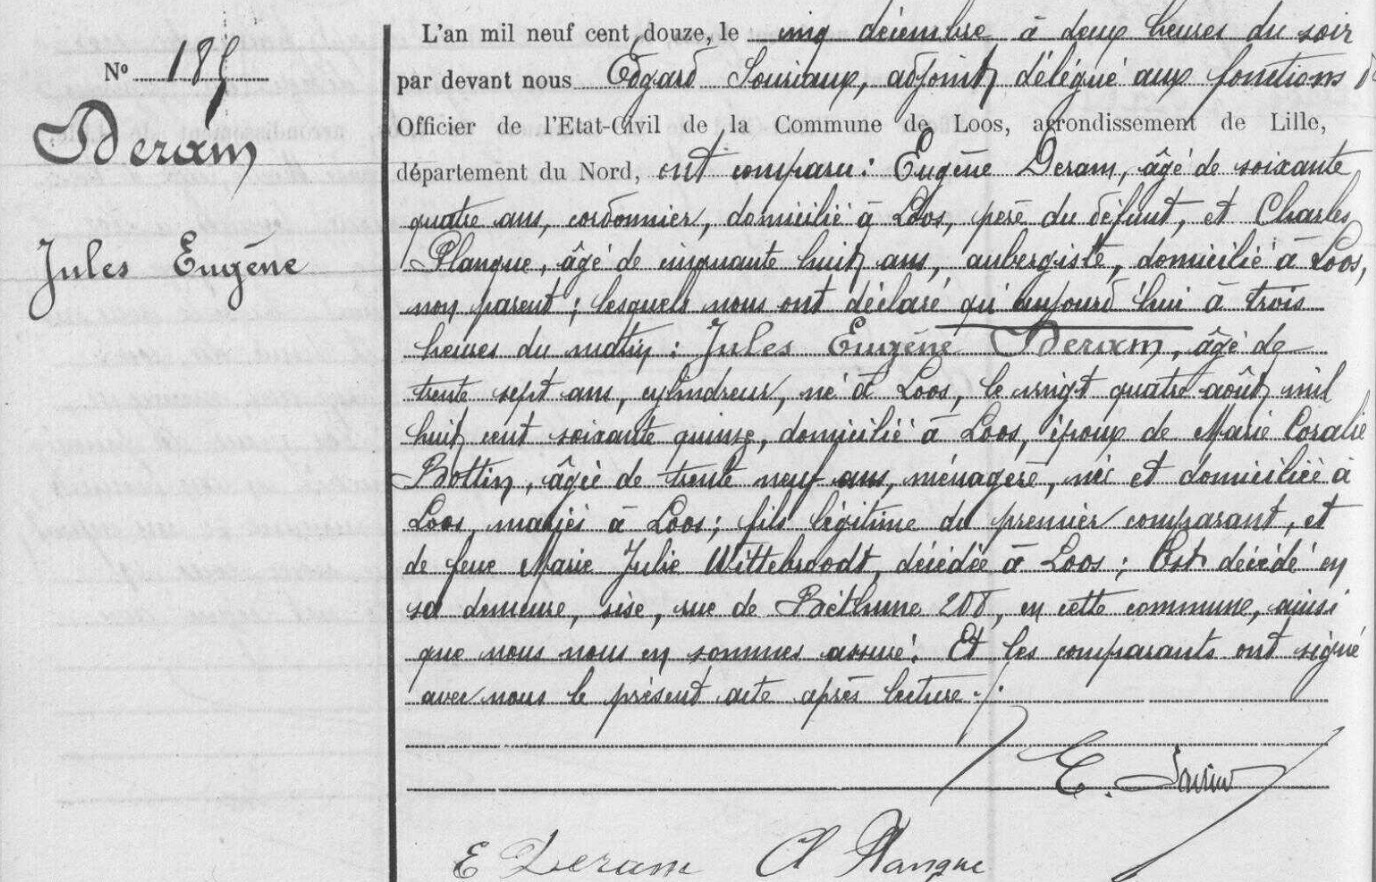 N° 185
Deram
Jules Eugène
L'an mil neuf cent douze, le cinq décembre à deux heures du soir
par devant nous Edgard Souviaux, adjoint délégué aux fonctions d
Officier de l'Etat-Civil de la Commune de Loos, arrondissement de Lille,
département du Nord, ont comparu: Eugène Deram, âgé de soixante
quatre ans, cordonnier, domicilié à Loos, père du défunt, et Charles
Planque, âgé de cinquante huit ans, aubergiste, domicilié à Loos,
non parent; lesquels nous ont déclaré qu'aujourd'hui à trois
heures du matin: Jules Eugène Deram, âgé de
trente sept ans, cylindreur, né à Loos, le vingt quatre août mil
huit cent soixante quinze, domicilié à Loos, époux de Marie Coralie
Bottin, âgée de trente neuf ans, ménagère, née et domiciliée à
Loos, mariés à Loos; fils légitime du premier comparant, et
de feue Marie Julie Wittebroodt, décédée à Loos; Est décédé en
sa demeure, sise, rue de Béthune 208, en cette commune, ainsi
que nous nous en sommes assuré. Et les comparants ont signé
avec nous le présent acte après lecture ./.
E Deram Ch Planque